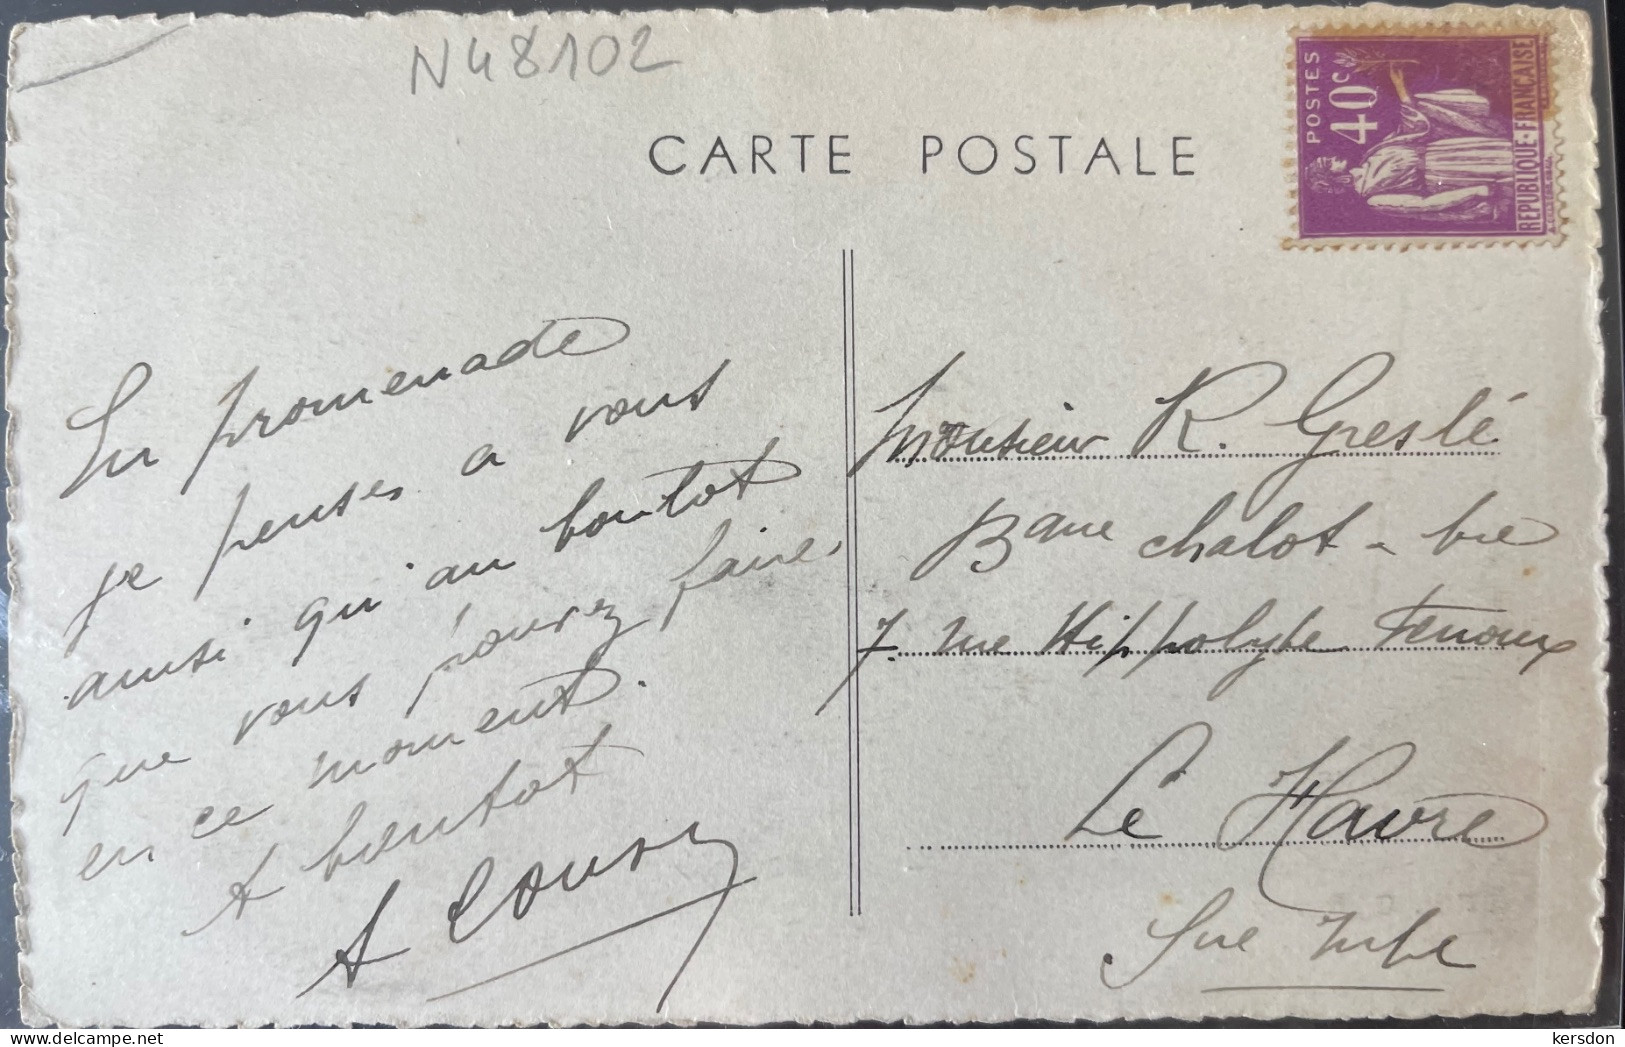 N48102
CARTE POSTALE
POSTES
40c
REPUBLIQUE-FRANÇAISE
En promenade
je penses a vous
ainsi qu'au boulot
que vous pouvez faire
en ce moment.
A bientot
A
Monsieur R. Greslé
chalot
7. rue Hippolyte Fenoux
Le Havre
Sne Infre
kersdon